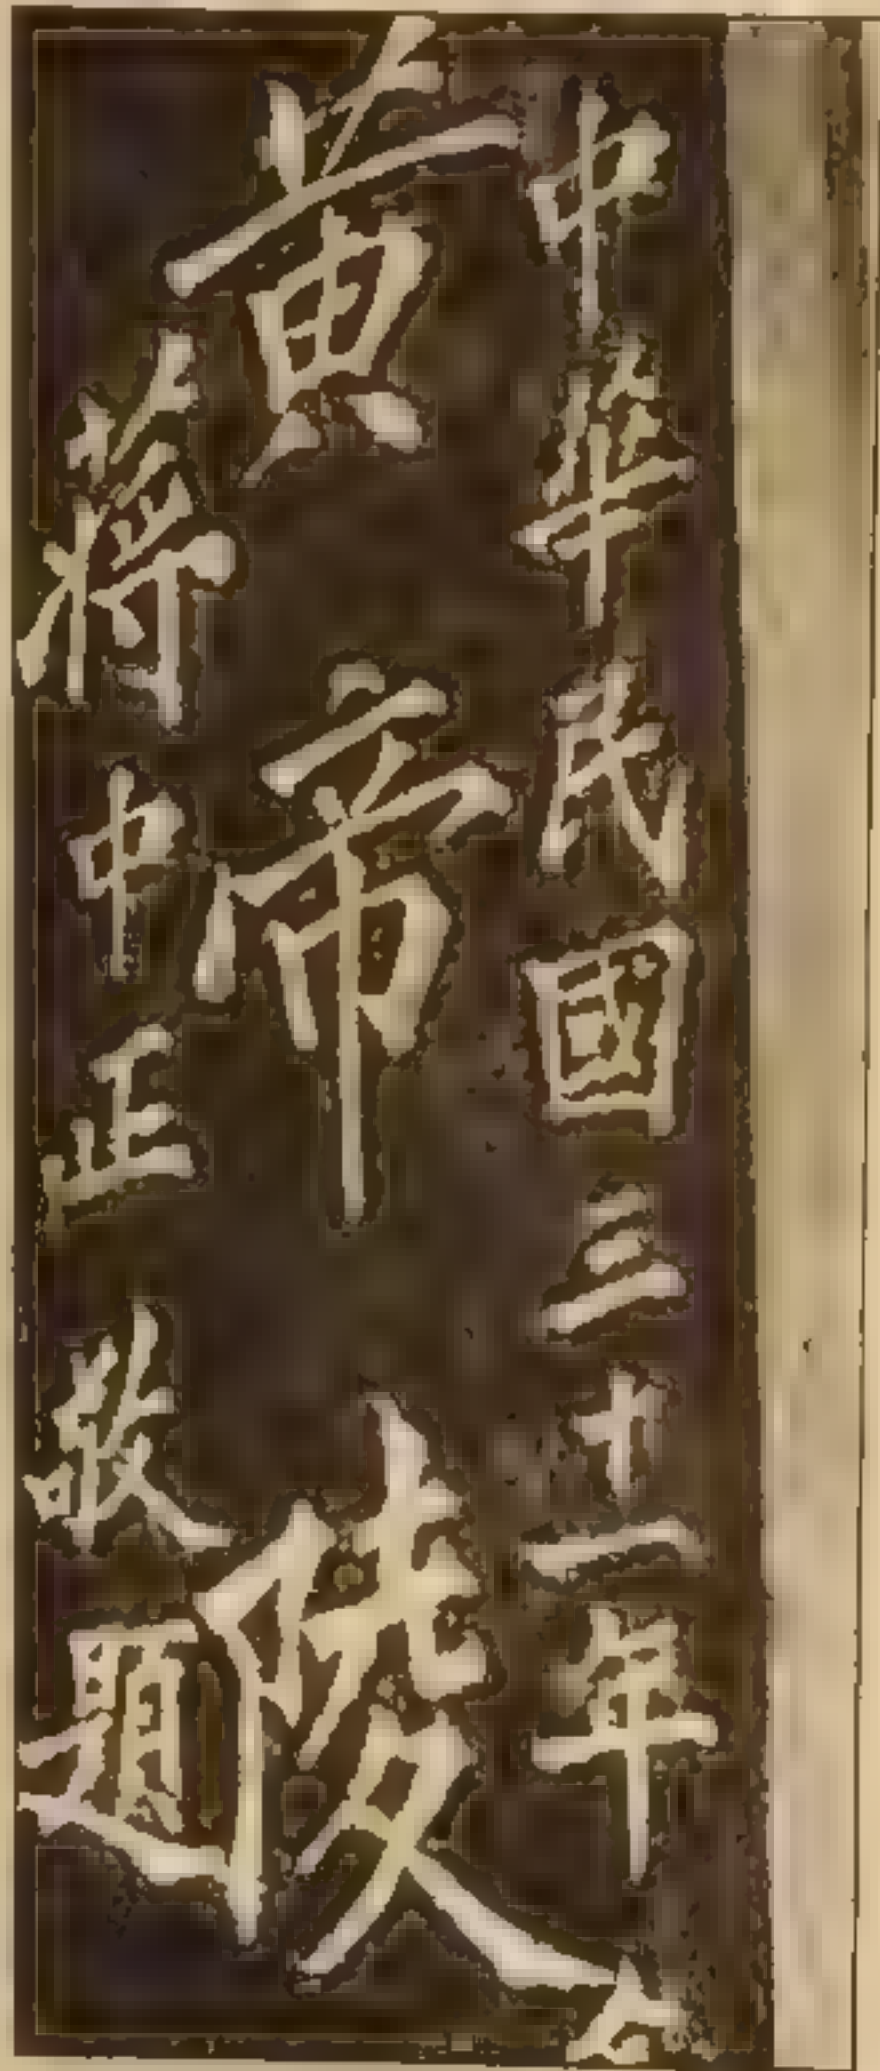 中華民國三十一年
黃帝陵
蔣中正敬題